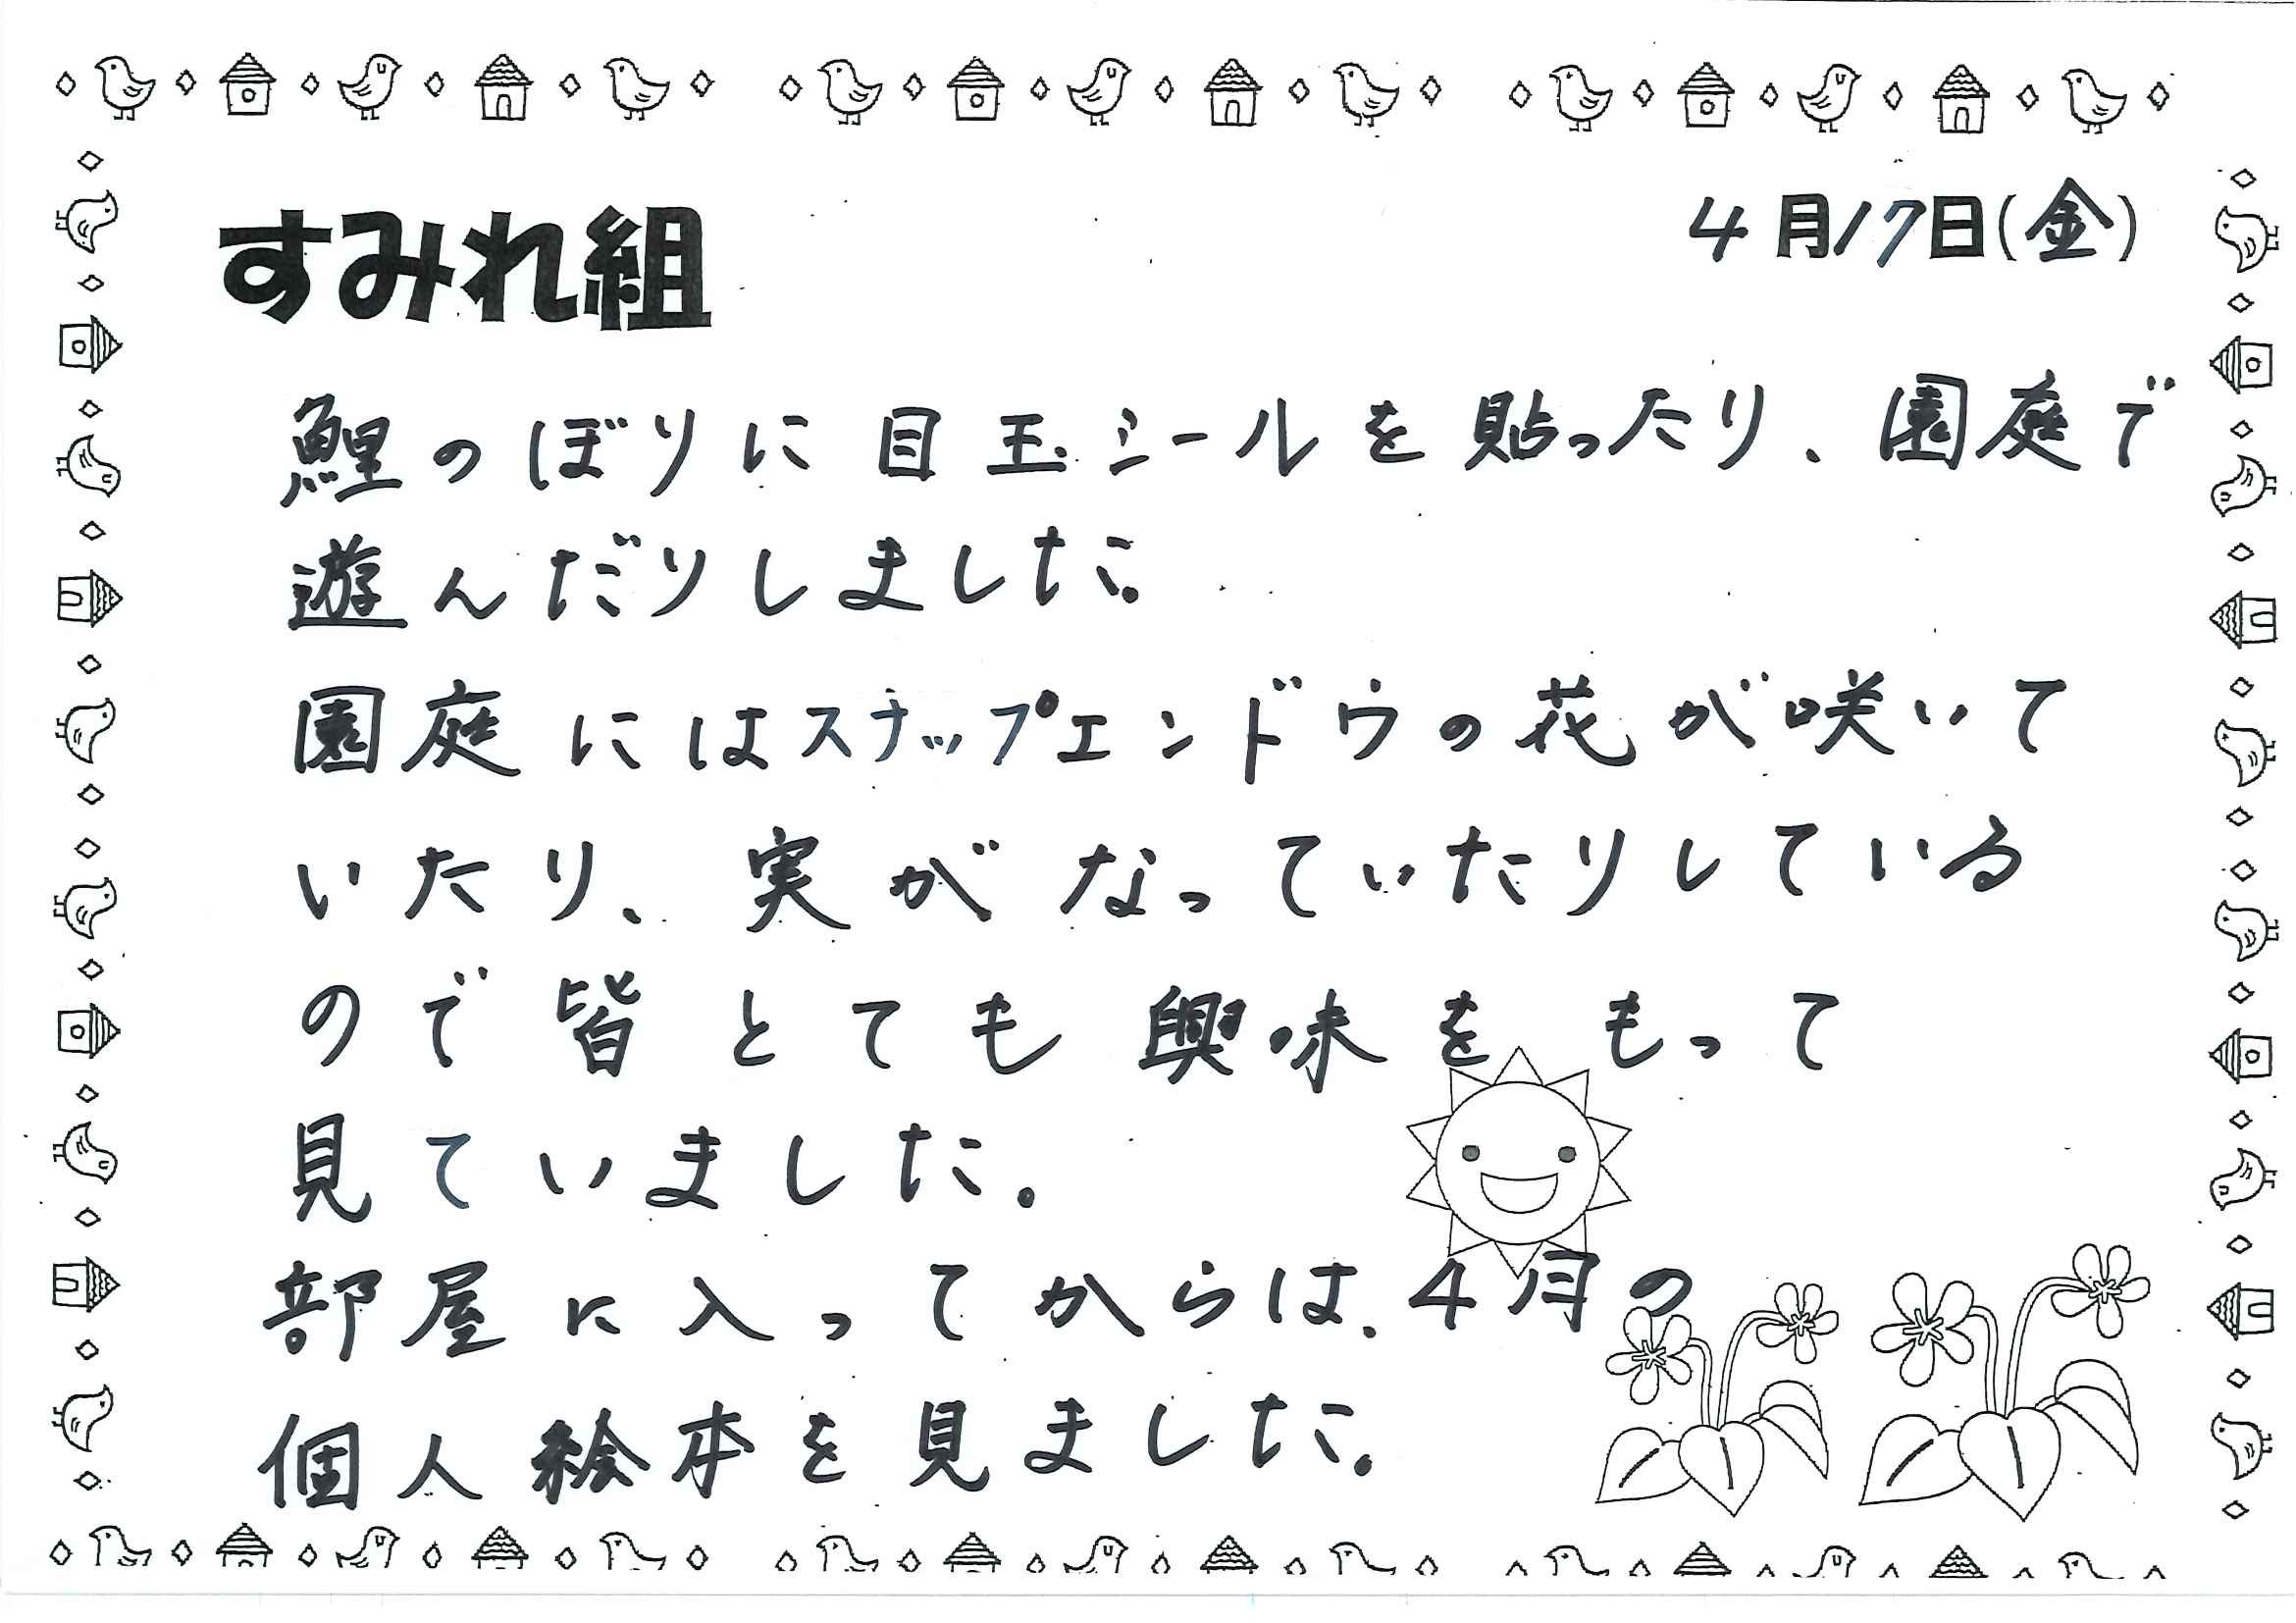 すみれ組
4月17日(金)
鯉のぼりに目玉シールを貼ったり、園庭で
遊んだりしました。
園庭にはスナップエンドウの花が咲いて
いたり、実がなっていたりしている
ので皆とても興味をもって
見ていました。
部屋に入ってからは、4月の
個人絵本を見ました。